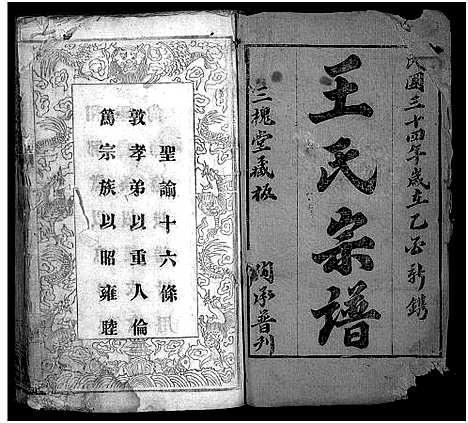 民國三十四年歲在乙酉新鐫
王氏宗譜
三槐堂藏板
閏承普刊
聖諭十六條
敦孝弟以重人倫
篤宗族以昭雍睦